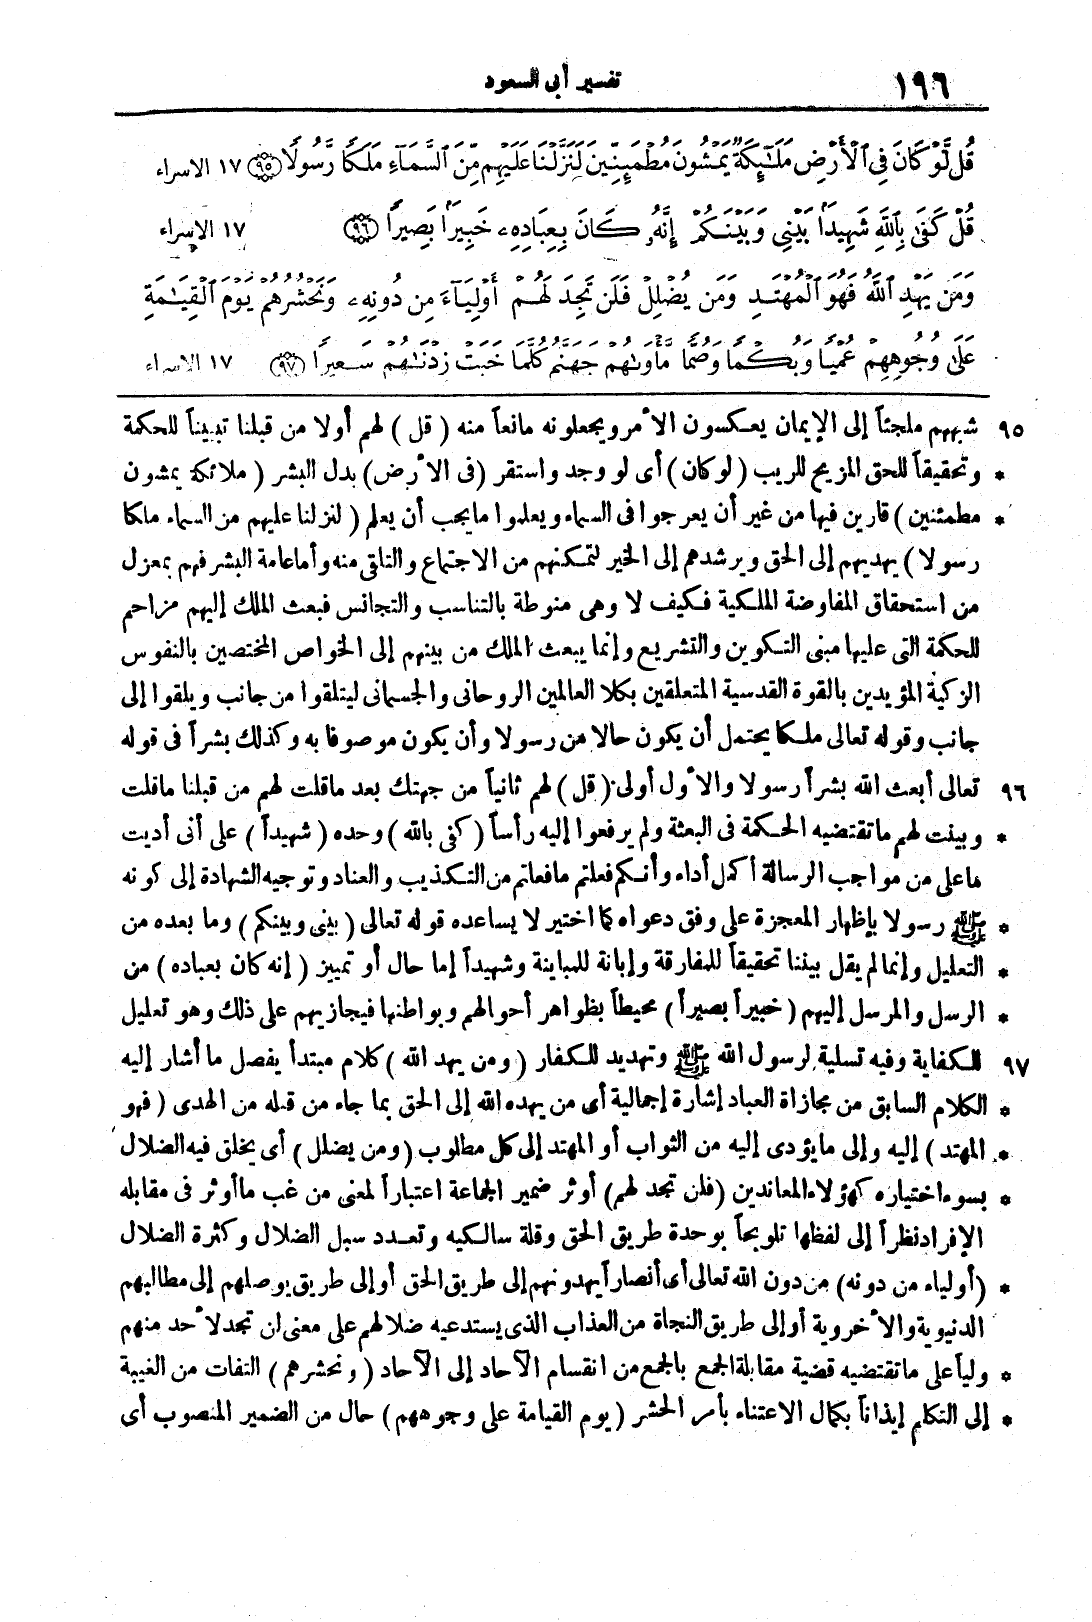 ١٩٦
تفسير أبى السعود
قُل لَّوْ كَانَ فِى ٱلْأَرْضِ مَلَـٰٓئِكَةٌ يَمْشُونَ مُطْمَئِنِّينَ لَنَزَّلْنَا عَلَيْهِم مِّنَ ٱلسَّمَآءِ مَلَكًا رَّسُولًا ﴿٩٥﴾ ١٧ الاسراء
قُلْ كَفَىٰ بِٱللَّهِ شَهِيدًۢا بَيْنِى وَبَيْنَكُمْ إِنَّهُۥ كَانَ بِعِبَادِهِۦ خَبِيرًۢا بَصِيرًا ﴿٩٦﴾ ١٧ الإسراء
وَمَن يَهْدِ ٱللَّهُ فَهُوَ ٱلْمُهْتَدِ وَمَن يُضْلِلْ فَلَن تَجِدَ لَهُمْ أَوْلِيَآءَ مِن دُونِهِۦ وَنَحْشُرُهُمْ يَوْمَ ٱلْقِيَـٰمَةِ
عَلَىٰ وُجُوهِهِمْ عُمْيًا وَبُكْمًا وَصُمًّا مَّأْوَىٰهُمْ جَهَنَّمُ كُلَّمَا خَبَتْ زِدْنَـٰهُمْ سَعِيرًا ﴿٩٧﴾ ١٧ الاسراء
٩٥ شبههم ملجئاً إلى الإيمان يعكسون الأمر ويجعلونه مانعاً منه ( قل ) لهم أولا من قبلنا تبييناً للحكمة
* وتحقيقاً للحق المزيح للريب ( لو كان ) أى لو وجد واستقر ( فى الأرض ) بدل البشر ( ملائكة يمشون
* مطمئنين ) قارين فيها من غير أن يعرجوا فى السماء ويعلموا ما يجب أن يعلم ( لنزلنا عليهم من السماء ملكا
رسولا ) يهديهم إلى الحق ويرشدهم إلى الخير لتمكنهم من الاجتماع والتلقى منه وأما عامة البشر فهم بمعزل
من استحقاق المفاوضة الملكية فكيف لا وهى منوطة بالتناسب والتجانس فبعث الملك إليهم مزاحم
للحكمة التى عليها مبنى التكوين والتشريع وإنما يبعث الملك من بينهم إلى الخواص المختصين بالنفوس
الزكية المؤيدين بالقوة القدسية المتعلقين بكلا العالمين الروحانى والجسمانى ليتلقوا من جانب ويلقوا إلى
جانب وقوله تعالى ملكا يحتمل أن يكون حالا من رسولا وأن يكون موصوفا به وكذلك بشراً فى قوله
٩٦ تعالى أبعث الله بشراً رسولا والأول أولى ( قل ) لهم ثانياً من جهتك بعد ما قلت لهم من قبلنا ما قلت
* وبينت لهم ما تقتضيه الحكمة فى البعثة ولم يرفعوا إليه رأساً ( كفى بالله ) وحده ( شهيداً ) على أنى أديت
ما على من مواجب الرسالة أكمل أداء وأنكم فعلتم ما فعلتم من التكذيب والعناد وتوجيه الشهادة إلى كونه
* ﷺ رسولا بإظهار المعجزة على وفق دعواه كما اختير لا يساعده قوله تعالى ( بينى وبينكم ) وما بعده من
* التعليل وإنما لم يقل بيننا تحقيقاً للمفارقة وإبانة للمباينة وشهيداً إما حال أو تمييز ( إنه كان بعباده ) من
* الرسل والمرسل إليهم ( خبيراً بصيراً ) محيطاً بظواهر أحوالهم وبواطنها فيجازيهم على ذلك وهو تعليل
٩٧ للكفاية وفيه تسلية لرسول الله ﷺ وتهديد للكفار ( ومن يهد الله ) كلام مبتدأ يفصل ما أشار إليه
* الكلام السابق من مجازاة العباد إشارة إجمالية أى من يهده الله إلى الحق بما جاء من قبله من الهدى ( فهو
* المهتد ) إليه وإلى ما يؤدى إليه من الثواب أو المهتد إلى كل مطلوب ( ومن يضلل ) أى يخلق فيه الضلال
* بسوء اختياره كهؤلاء المعاندين ( فلن تجد لهم ) أوثر ضمير الجماعة اعتباراً لمعنى من غب ما أوثر فى مقابله
الإفراد نظراً إلى لفظها تلويحاً بوحدة طريق الحق وقلة سالكيه وتعدد سبل الضلال وكثرة الضلال
* ( أولياء من دونه ) من دون الله تعالى أى أنصاراً يهدونهم إلى طريق الحق أو إلى طريق يوصلهم إلى مطالبهم
الدنيوية والأخروية أو إلى طريق النجاة من العذاب الذى يستدعيه ضلالهم على معنى لن تجد لأحد منهم
* ولياً على ما تقتضيه قضية مقابلة الجمع بالجمع من انقسام الآحاد إلى الآحاد ( ونحشرهم ) التفات من الغيبة
* إلى التكلم إيذاناً بكمال الاعتناء بأمر الحشر ( يوم القيامة على وجوههم ) حال من الضمير المنصوب أى